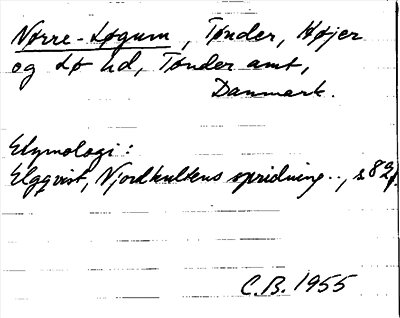 Nørre-Løgum, Tønder, Højer
og Lø hd, Tønder amt,
Danmark.
Etymologi:
Elgqvist, Njordkultens spridning.., s. 82f.
C.B. 1955